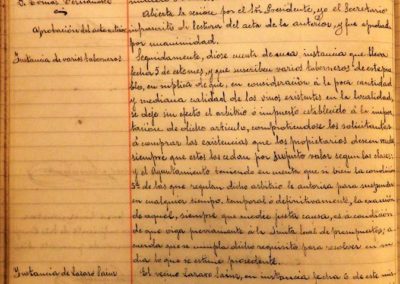 D. Tomas Fernandez
Abierta la sesion por el Sr. Presidente, yo el Secretario
Aprobación del acta anterior
de lectura del acta de la anterior, y fue aprobada
por unanimidad.
Instancia de varios taberneros
Seguidamente, dióse cuenta de una instancia que lleva
fecha 5 de este mes, y que suscriben varios taberneros de este pue
blo, en súplica de que, en consideración á la poca cantidad
y mediana calidad de los vinos existentes en la localidad,
se deje sin efecto el arbitrio ó impuesto establecido á la impor
tación de dicho articulo, comprometiendose los solicitantes
á comprar las existencias que los propietarios deseen
siempre que estos las cedan por su justo valor segun las clases:
y el Ayuntamiento teniendo en cuenta que si bien la condicion
5ª de las que regulan dicho arbitrio le autoriza para suspender
en cualquier tiempo, temporal ó definitivamente, la exacción
de aquel, siempre que medie justa causa, es á condicion
de que oiga previamente á la Junta local de presupuestos; a
cuerda que se cumpla dicho requisito para resolver en su
dia lo que se estime procedente.
Instancia de Lazaro Sainz
El vecino Lazaro Sainz, en instancia fecha 6 de este mes